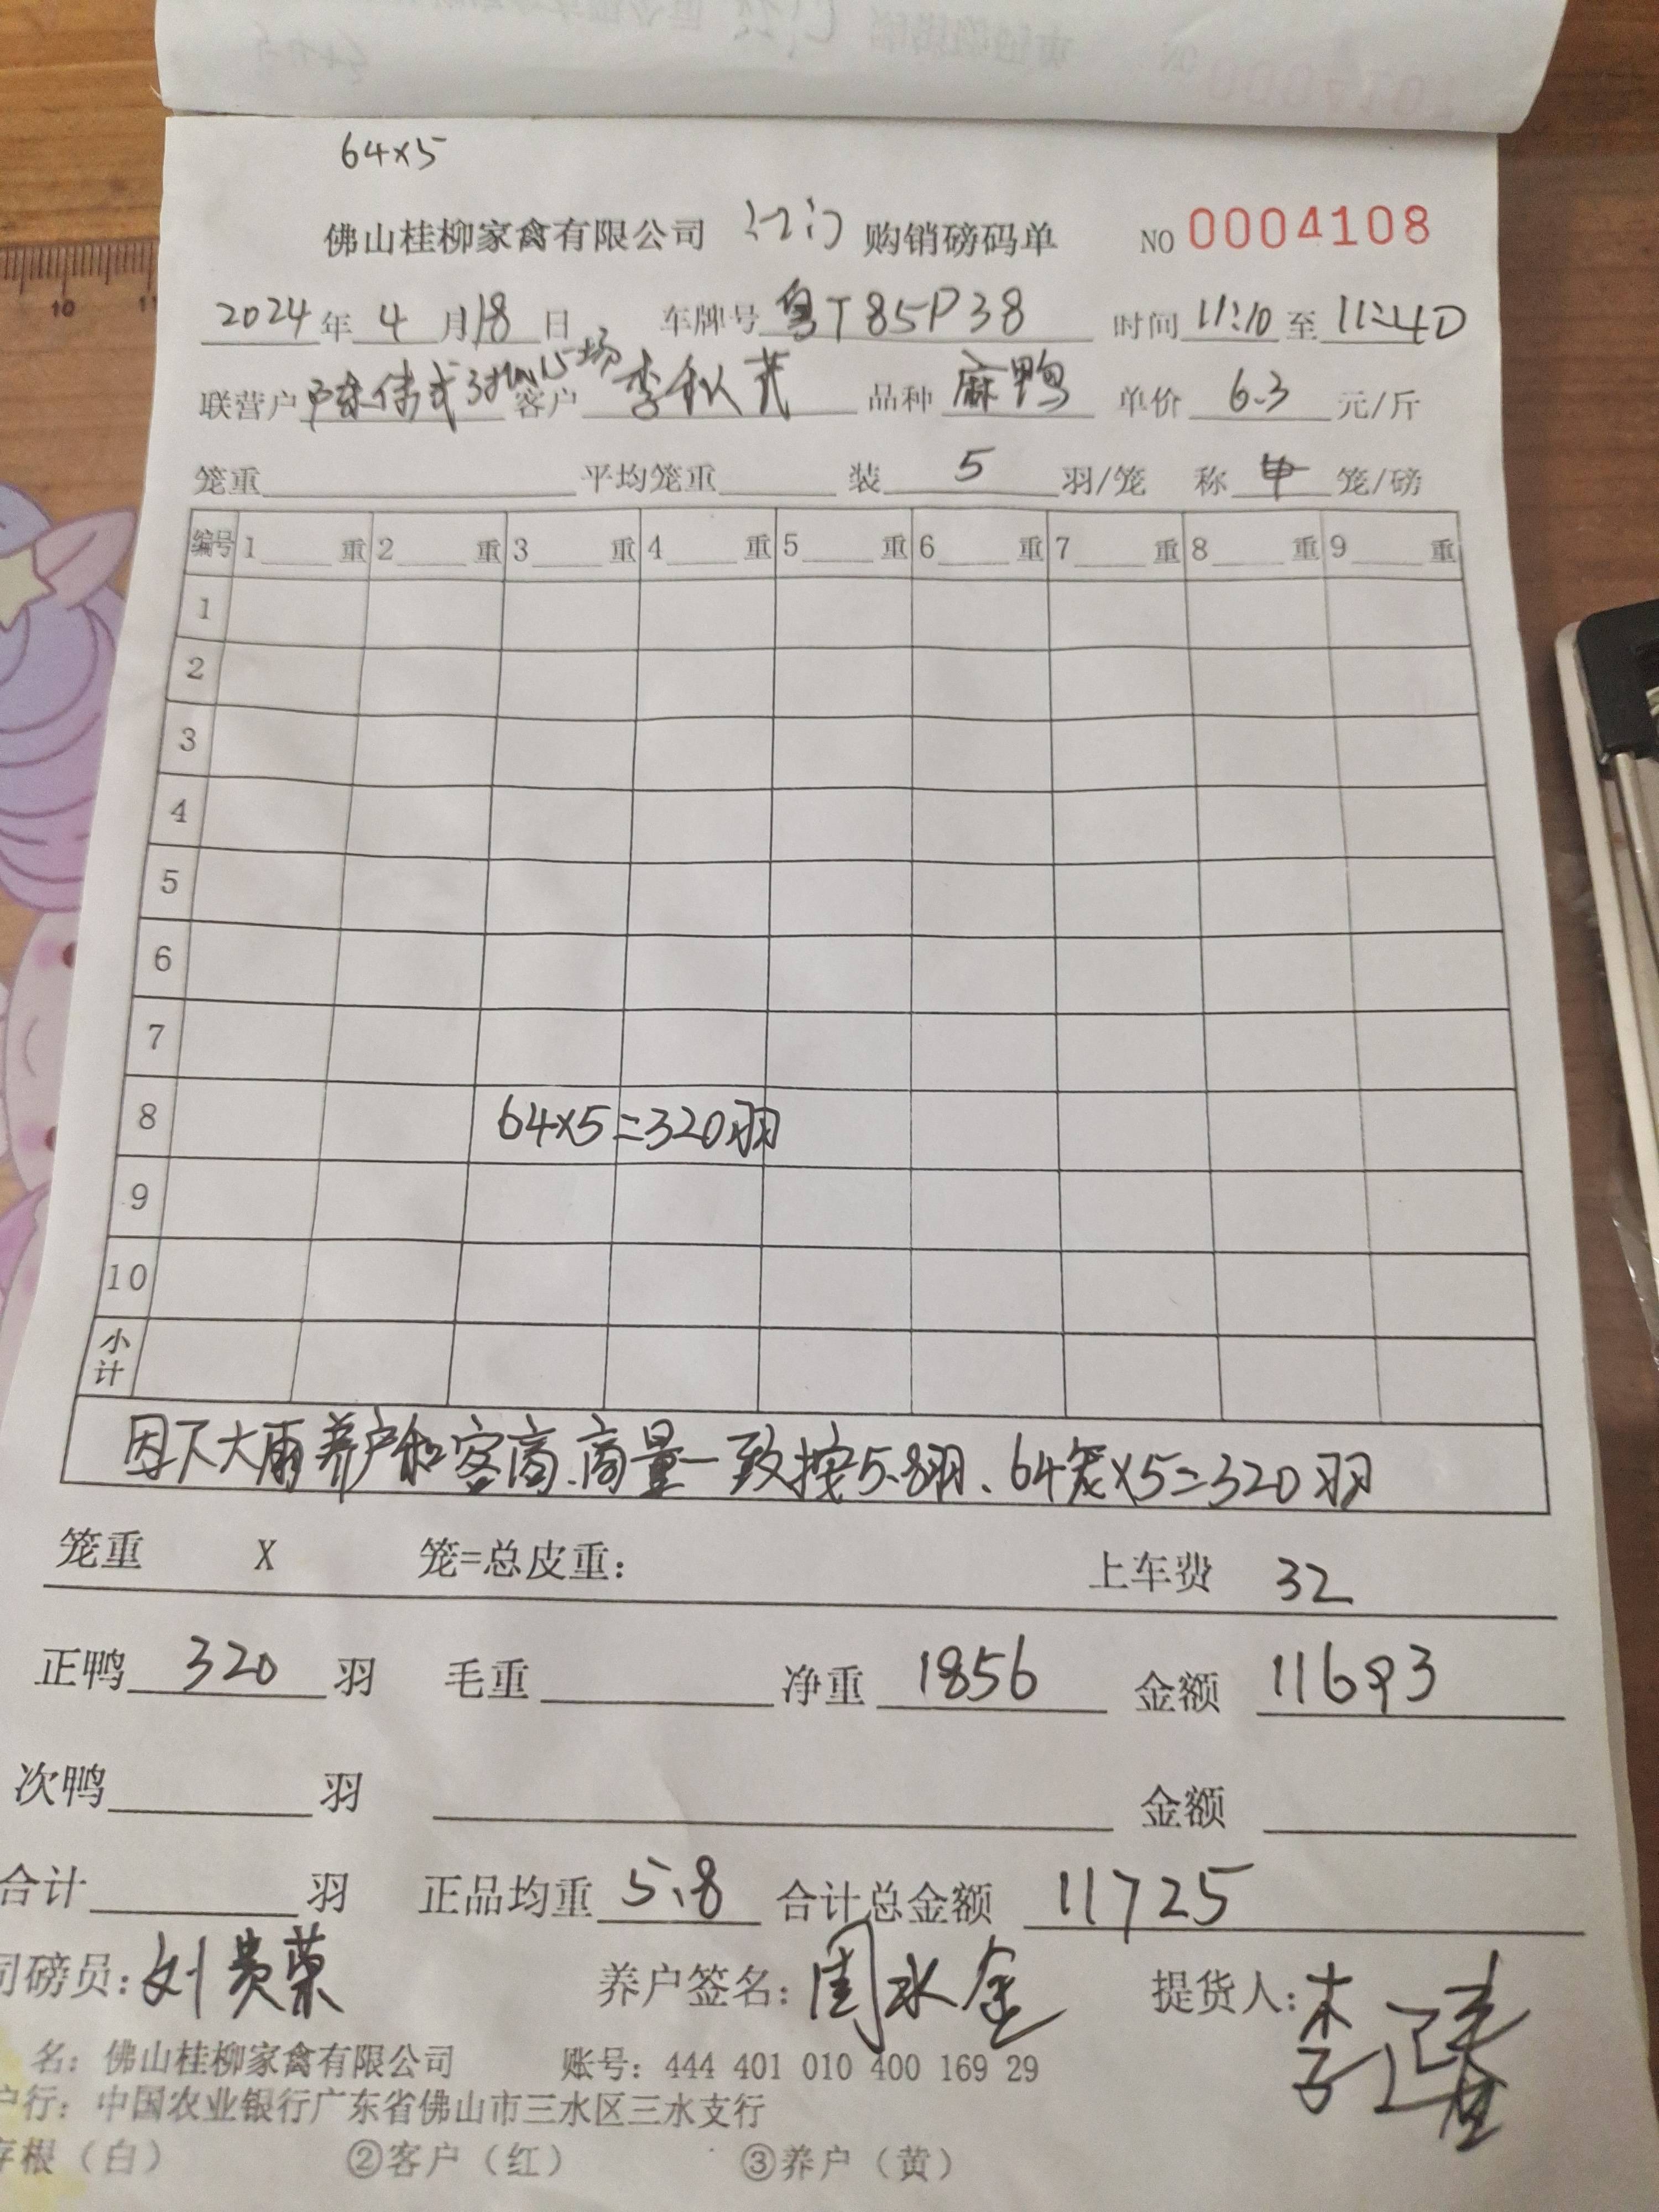 64×5
佛山桂柳家禽有限公司 江门 购销磅码单 NO 0004108
2024年4月18日 车牌号 粤T85P38 时间 11:10 至 11:40
联营户 陈伟 场 客户 李秋茂 品种 麻鸭 单价 6.3 元/斤
笼重 平均笼重 装 5 羽/笼 称 笼/磅
编号 1 重 2 重 3 重 4 重 5 重 6 重 7 重 8 重 9 重
1
2
3
4
5
6
7
8 64×5=320羽
9
10
小计
因下大雨养户和客商.商量一致按5.8羽、64笼×5=320羽
笼重 X 笼=总皮重: 上车费 32
正鸭 320 羽 毛重 净重 1856 金额 11693
次鸭 羽 金额
合计 羽 正品均重 5.8 合计总金额 11725
司磅员: 刘贵荣 养户签名: 周水金 提货人: 李
名: 佛山桂柳家禽有限公司 账号: 444 401 010 400 169 29
户行: 中国农业银行广东省佛山市三水区三水支行
存根（白） ②客户（红） ③养户（黄）